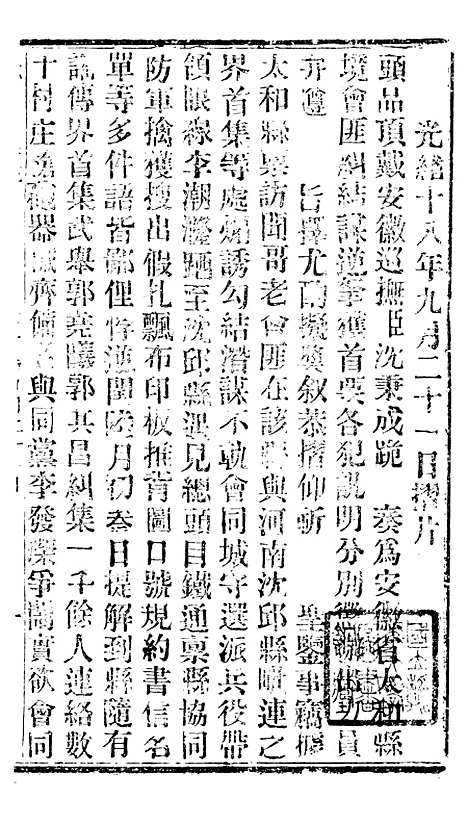 光緒十八年九月二十一日摺片
頭品頂戴安徽巡撫臣沈秉成跪 奏為安徽省太和縣
境會匪糾結謀逆拏獲首要各犯訊明分別懲辦出力員
弁遵 旨擇尤酌擬獎叙恭摺仰祈 聖鑒事竊據
太和縣稟訪聞哥老會匪在該縣與河南沈邱縣毗連之
界首集等處煽誘勾結潛謀不軌會同城守選派兵役帶
領眼線李潮 至沈邱縣 見總頭目鐵通稟縣協同
防軍擒獲搜出假札飄布印板推背圖口號規約書信名
單等多件語皆鄙俚悖逆閏陸月初叁日提解到縣隨有
訛傳界首集武舉郭堯 郭其昌糾集一千餘人連絡數
十村庄 器械齊備 與同黨李發 爭鬬實欲會同